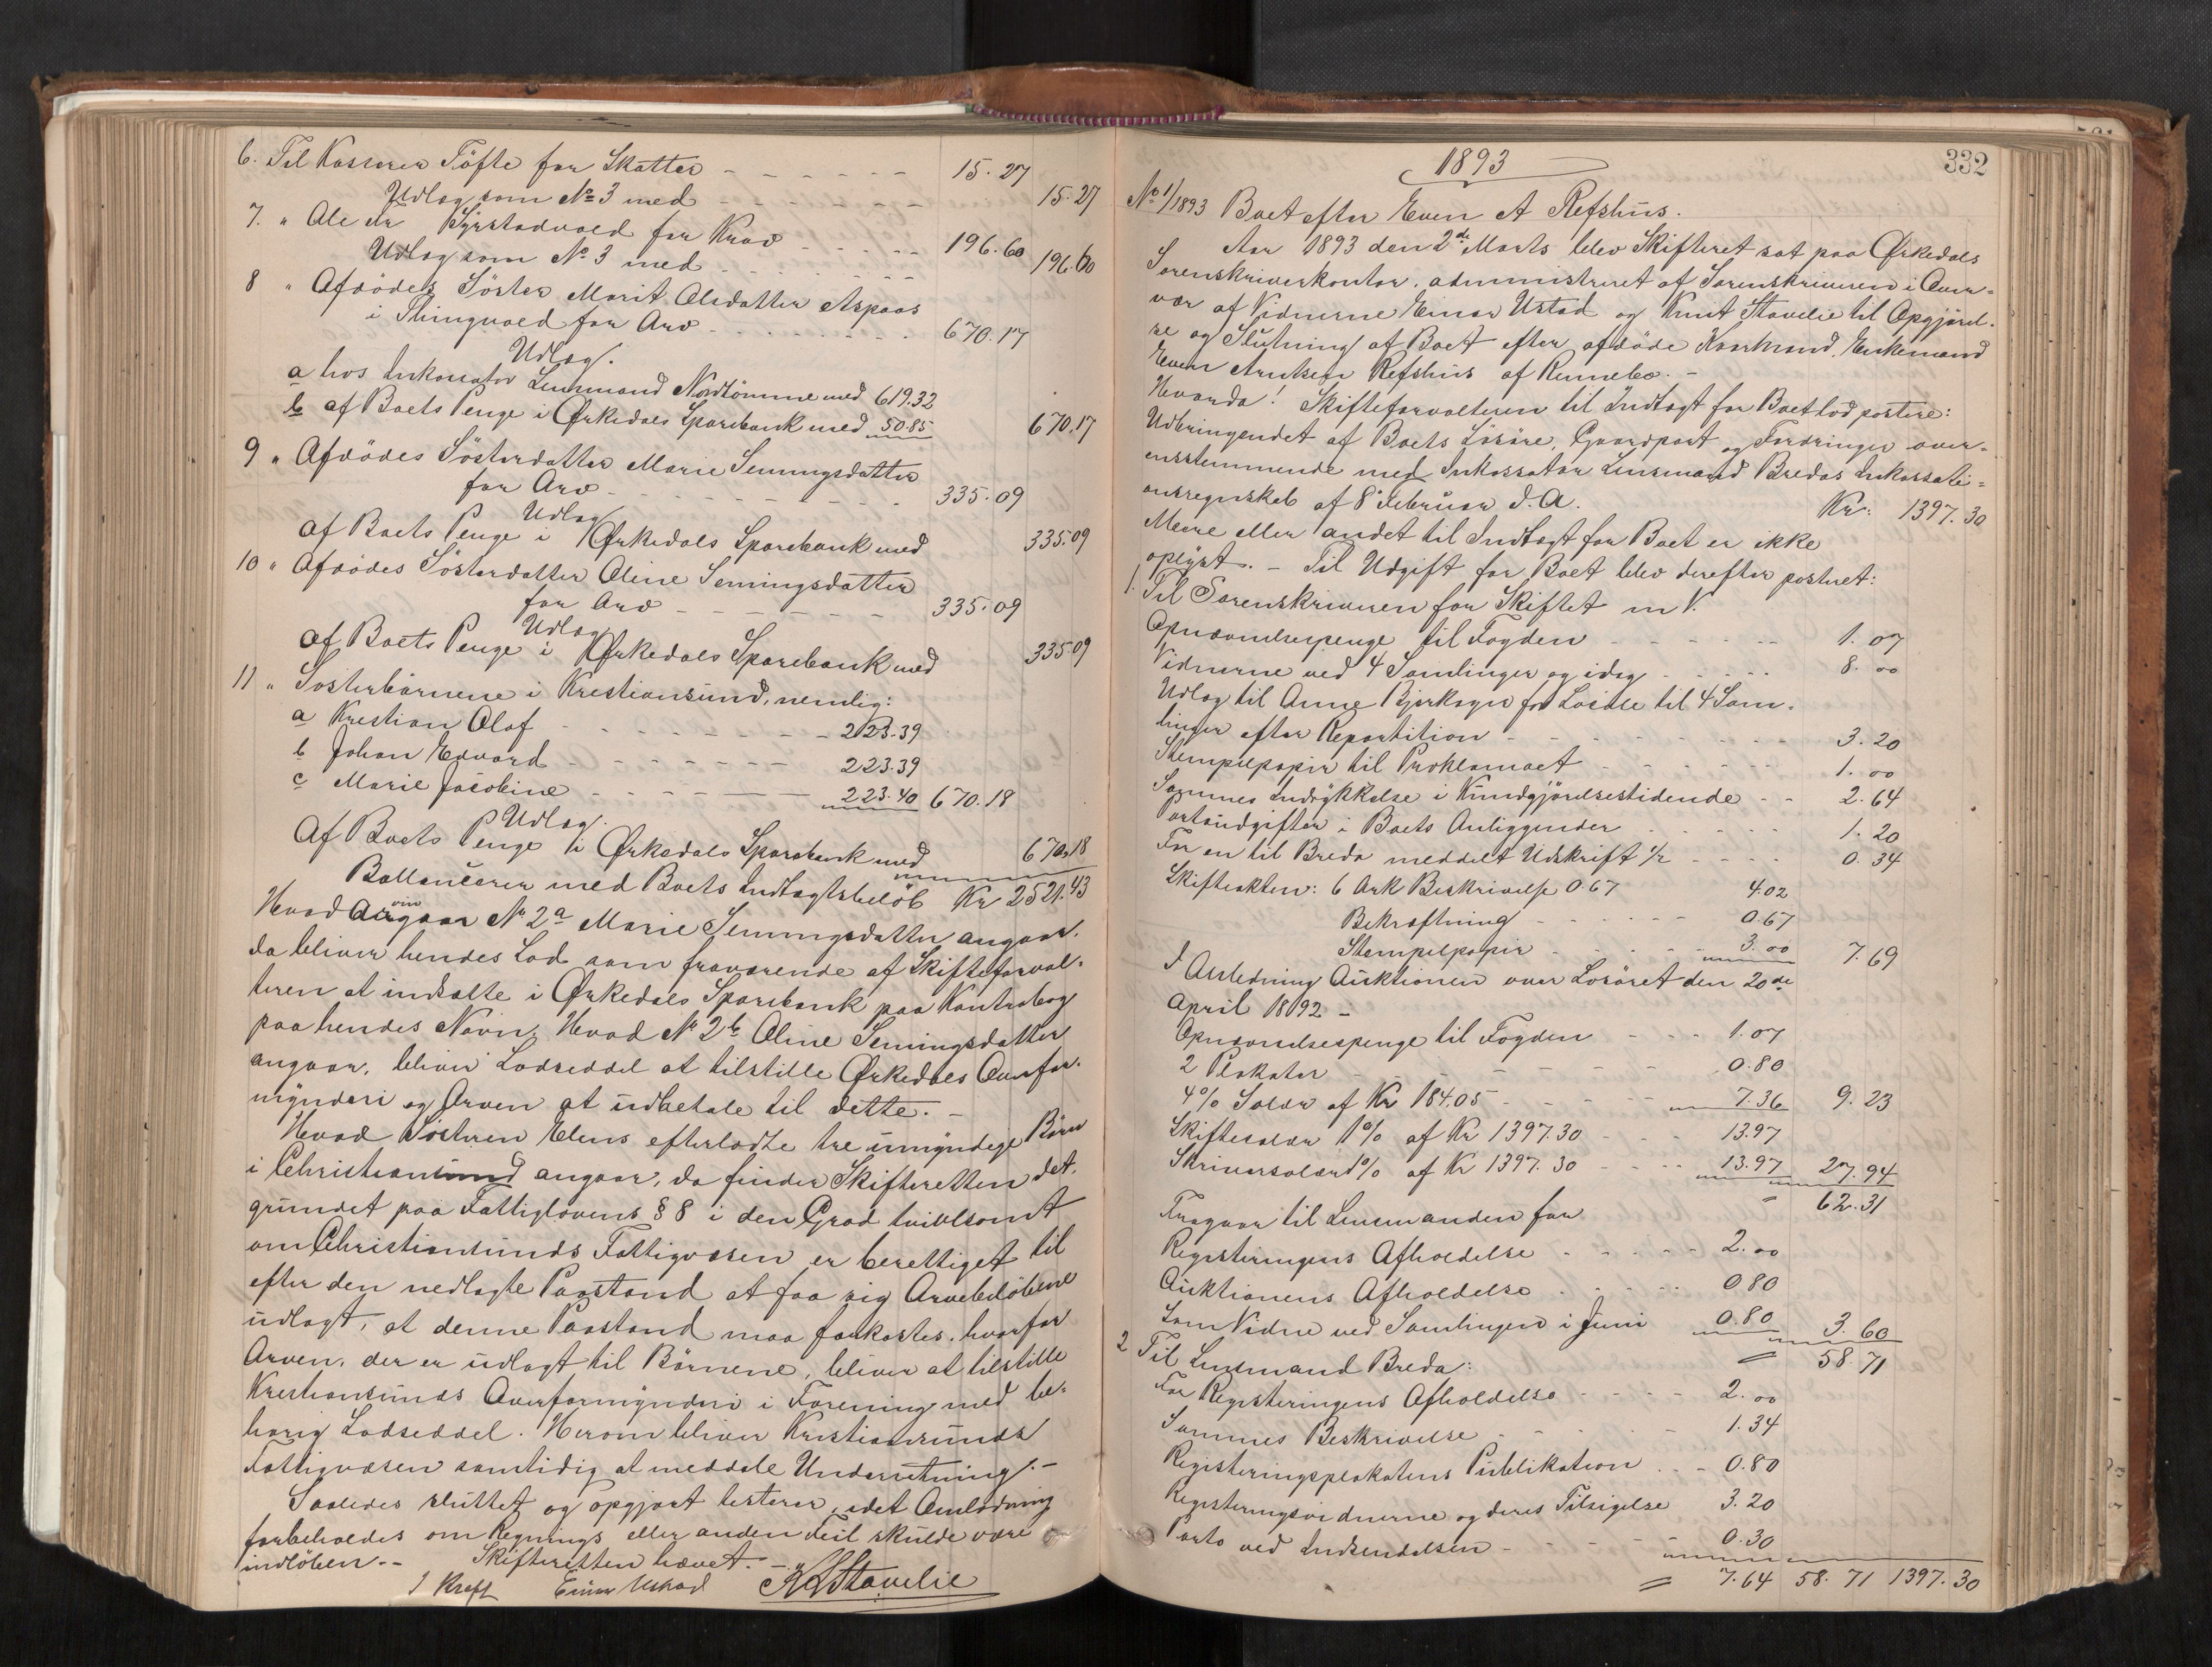 6. Til Kasserer Töfte for Skatter - - - - - - 15.27
Udlæg som No 3 med - - - - - - 15.27
7. " Ole Byrstadvold for Krav - - - - 196.60
Udlæg som No 3 med - - - - - - 196.60
8 " Afdödes Söster Marit Olsdatter Aspaas
i Thingvold for Arv - - - - - - 670.17
Udlæg.
a hos Inkassator Lensmand Nordtömme med 619.32
b af Boets Penge i Ørkedals Sparebank med 50.85 670.17
9 " Afdödes Sösterdatter Marie Semmingsdatter
for Arv - - - - - - 335.09
Udlæg
af Boets Penge i Ørkedals Sparebank med 335.09
10 " Afdödes Sösterdatter Oline Semingsdatter
for Arv - - - - - - 335.09
Udlæg
af Boets Penge i Ørkedals Sparebank med 335.09
11 " Sösterbörnene i Krestiansund, nemlig:
a Krestian Olaf - - - - - - 223.39
b Johan Edvard - - - - - - 223.39
c Marie Jacobine - - - - - 223.40 670.18
Udlæg.
Af Boets Penge i Ørkedals Sparebank med 670.18
Ballancerer med Boets Indtægtsbelöb Kr 2521.43
Hvad No 2a Marie Semingsdatter angaar,
da bliver hendes Lod som fraværende af Skifteforval-
teren at indsætte i Ørkedals Sparebank paa Kontrabog
paa hendes Navn. Hvad No 2b Oline Semingsdatter
angaar, bliver Lodseddel at tilstille Ørkedals Overfor-
mynderi og Arven at udbetale til dette. -
Hvad Sösteren Elens efterladte tre umyndige Börn
i Christiansund angaar, da finder Skifteretten det,
grundet paa Fattiglovens § 8 i den Grad tvivlsomt
om Christiansunds Fattigvæsen er berettiget til
efter den nedlagte Paastand at faa sig Arvebelöbene
udlagt, at denne Paastand maa forkastes, hvorfor
Arven, der er udlagt til Börnene, bliver at tilstille
Krestiansunds Overformynderi i Forening med be-
hörig Lodseddel. Herom bliver Kristiansunds
Fattigvæsen samtidig at meddele Underretning. -
Saaledes sluttet og opgjort testerer, idet Omlodning
forbeholdes om Regnings eller anden Feil skulde være
indlöben. - Skifteretten hævet. -
J Kraft Einar Ustad K Stavelie
332
1893
No 1/1893 Boet efter Even A Refshus.
Aar 1893 den 2de Marts blev Skifteret sat paa Ørkedals
Sorenskriverkontor, administreret af Sorenskriveren i Over-
vær af Vidnerne Einar Ustad og Knut Stavelie til Opgjörel-
se og Slutning af Boet efter afdöde Kaarmand, Enkemand
Even Arntsen Refshus af Rennebo. -
Hvorda! Skifteforvalteren til Indtægt for Boet lod postere:
Udbringendet af Boets Lösöre, Gaardpart og Fordringer over-
ensstemmende med Inkassator Lensmand Bredas Inkassati-
onsregnskab af 8 Februar d. A. Kr. 1397.30
Mere eller andet til Indtægt for Boet er ikke
oplyst. - Til Udgift for Boet blev derefter posteret:
1. Til Sorenskriveren for Skiftet m V.
Opnævnelsespenge til Fogden - - - - - - 1.07
Vidnerne ved 4 Samlinger og idag - - - - 8.00
Udlæg til Anne Bjerkager for Locale til 4 Sam-
linger efter Repartition - - - - - - 3.20
Stempelpapir til Proklamaet - - - - - 1.00
Sammes Indrykkelse i Kundgjörelsestidende - - 2.64
Portoudgifter i Boets Anliggender - - - - 1.20
For en til Breda meddelt Udskrift 1/2 - - - - 0.34
Skifteakten: 6 Ark Beskrivelse 0.67 4.02
Bekræftning - - - - - 0.67
Stempelpapir - - - - - 3.00 7.69
I Anledning Auktionen over Lösöret den 20de
April 1892 -
Opnævnelsespenge til Fogden - - - 1.07
2 Plakater - - - - - - 0.80
4% Salær af Kr 184.05 - - - - 7.36 9.23
Skiftesalær 1% af Kr 1397.30 - - - 13.97
Skriversalær 1% af Kr 1397.30 - - - 13.97 27.94
= 62.31
Fragaar til Lensmanden for
Registeringens Afholdelse - - - - - 2.00
Auktionens Afholdelse - - - - 0.80
Som Vidne ved Samlingen i Juni 0.80 3.60
= 58.71
2 Til Lensmand Breda:
For Registeringens Afholdelse - - - - 2.00
Sammes Beskrivelse - - - - - 1.34
Registeringsplakatens Publikation - - 0.80
Registeringsvidnerne og deres Tilsigelse 3.20
Porto ved Indsendelsen - - - - - 0.30
= 7.64 58.71 1397.30